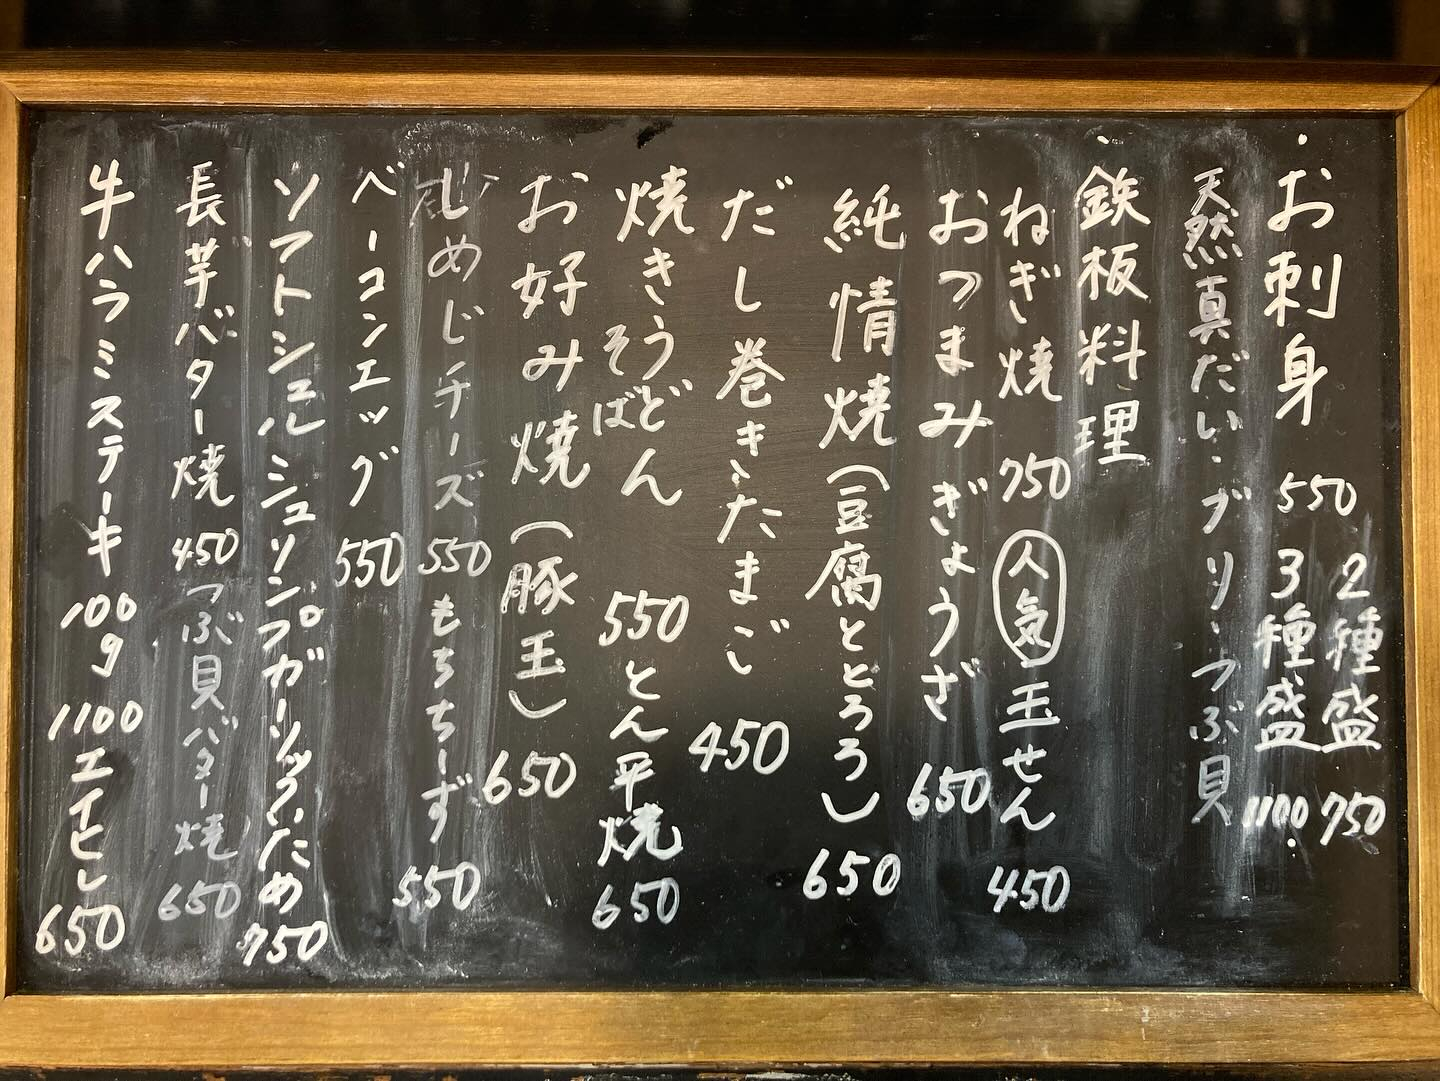 ・お刺身 550 2種盛 750
3種盛 1100.
天然真だい・ブリ・つぶ貝
・鉄板料理
ねぎ焼 750 人気 玉せん 450
おつまみぎょうざ 650
純情焼(豆腐ととろろ) 650
だし巻きたまご 450
焼きうどん 550 とん平焼 650
そば
お好み焼(豚玉) 650
しめじチーズ 550 もちちーず 550
ベーコンエッグ 550
ソフトシェルシュリンプガーリックいため 750
長芋バター焼 450 つぶ貝バター焼 650
牛ハラミステーキ 100g 1100 エイヒレ 650